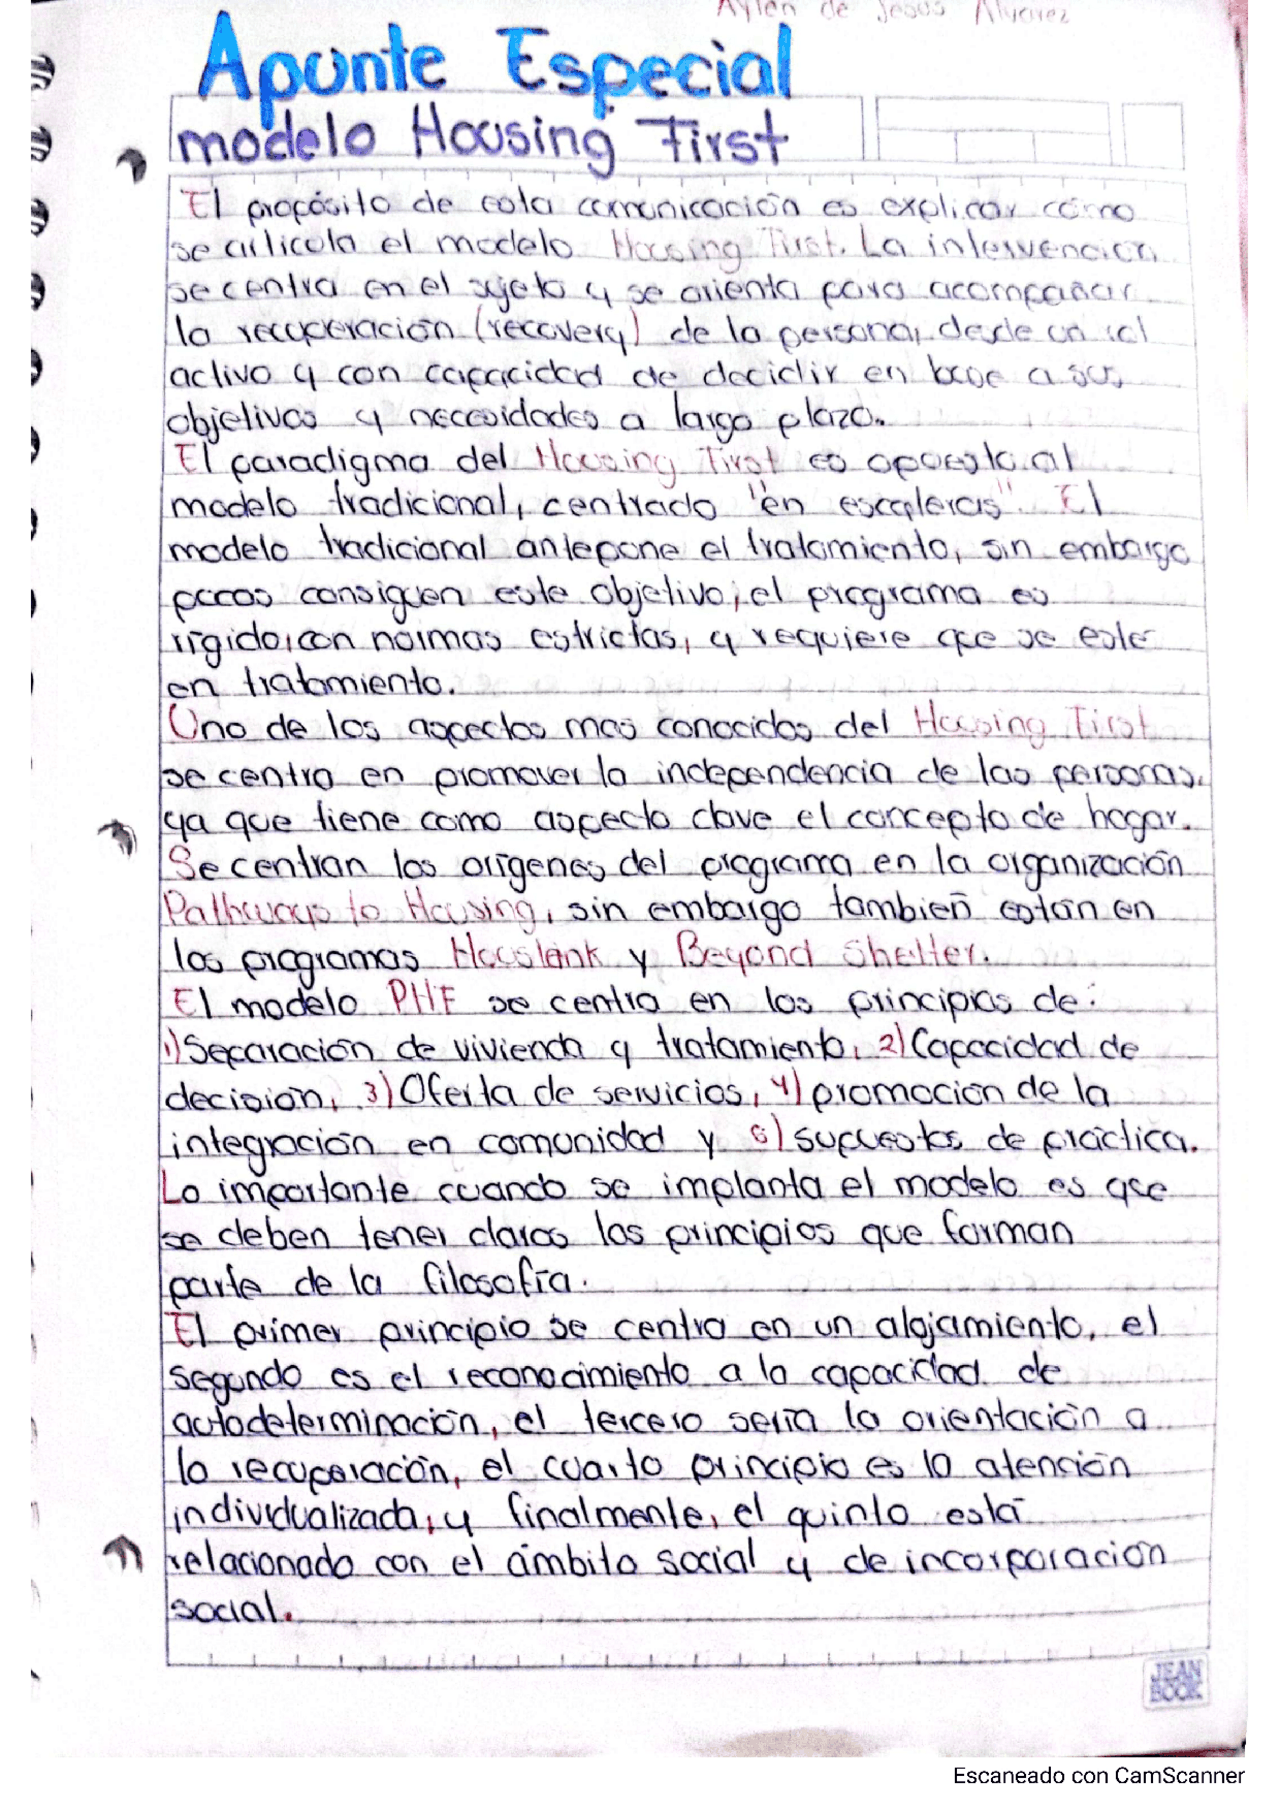 Aylen de Jesus Alvarez
Apunte Especial
modelo Housing First
El propósito de esta comunicación es explicar cómo
se articula el modelo Housing First. La intervención
se centra en el sujeto y se orienta para acompañar
la recuperación (recovery) de la persona, desde un rol
activo y con capacidad de decidir en base a sus
objetivos y necesidades a largo plazo.
El paradigma del Housing First es opuesto al
modelo tradicional, centrado "en escaleras". El
modelo tradicional antepone el tratamiento, sin embargo
pocos consiguen este objetivo, el programa es
rígido, con normas estrictas, y requiere que se este
en tratamiento.
Uno de los aspectos mas conocidos del Housing First
se centra en promover la independencia de las personas,
ya que tiene como aspecto clave el concepto de hogar.
Se centran los orígenes del programa en la organización
Pathways to Housing, sin embargo también están en
los programas Houslink y Beyond Shelter.
El modelo PHF se centra en los principios de:
1) Separación de vivienda y tratamiento, 2) Capacidad de
decisión, 3) Oferta de servicios, 4) promoción de la
integración en comunidad y 5) supuestos de práctica.
Lo importante cuando se implanta el modelo es que
se deben tener claros los principios que forman
parte de la filosofía.
El primer principio se centra en un alojamiento, el
segundo es el reconocimiento a la capacidad de
autodeterminación, el tercero sería la orientación a
la recuperación, el cuarto principio es la atención
individualizada, y finalmente, el quinto está
relacionado con el ámbito social y de incorporación
social.
JEAN
BOOK
Escaneado con CamScanner